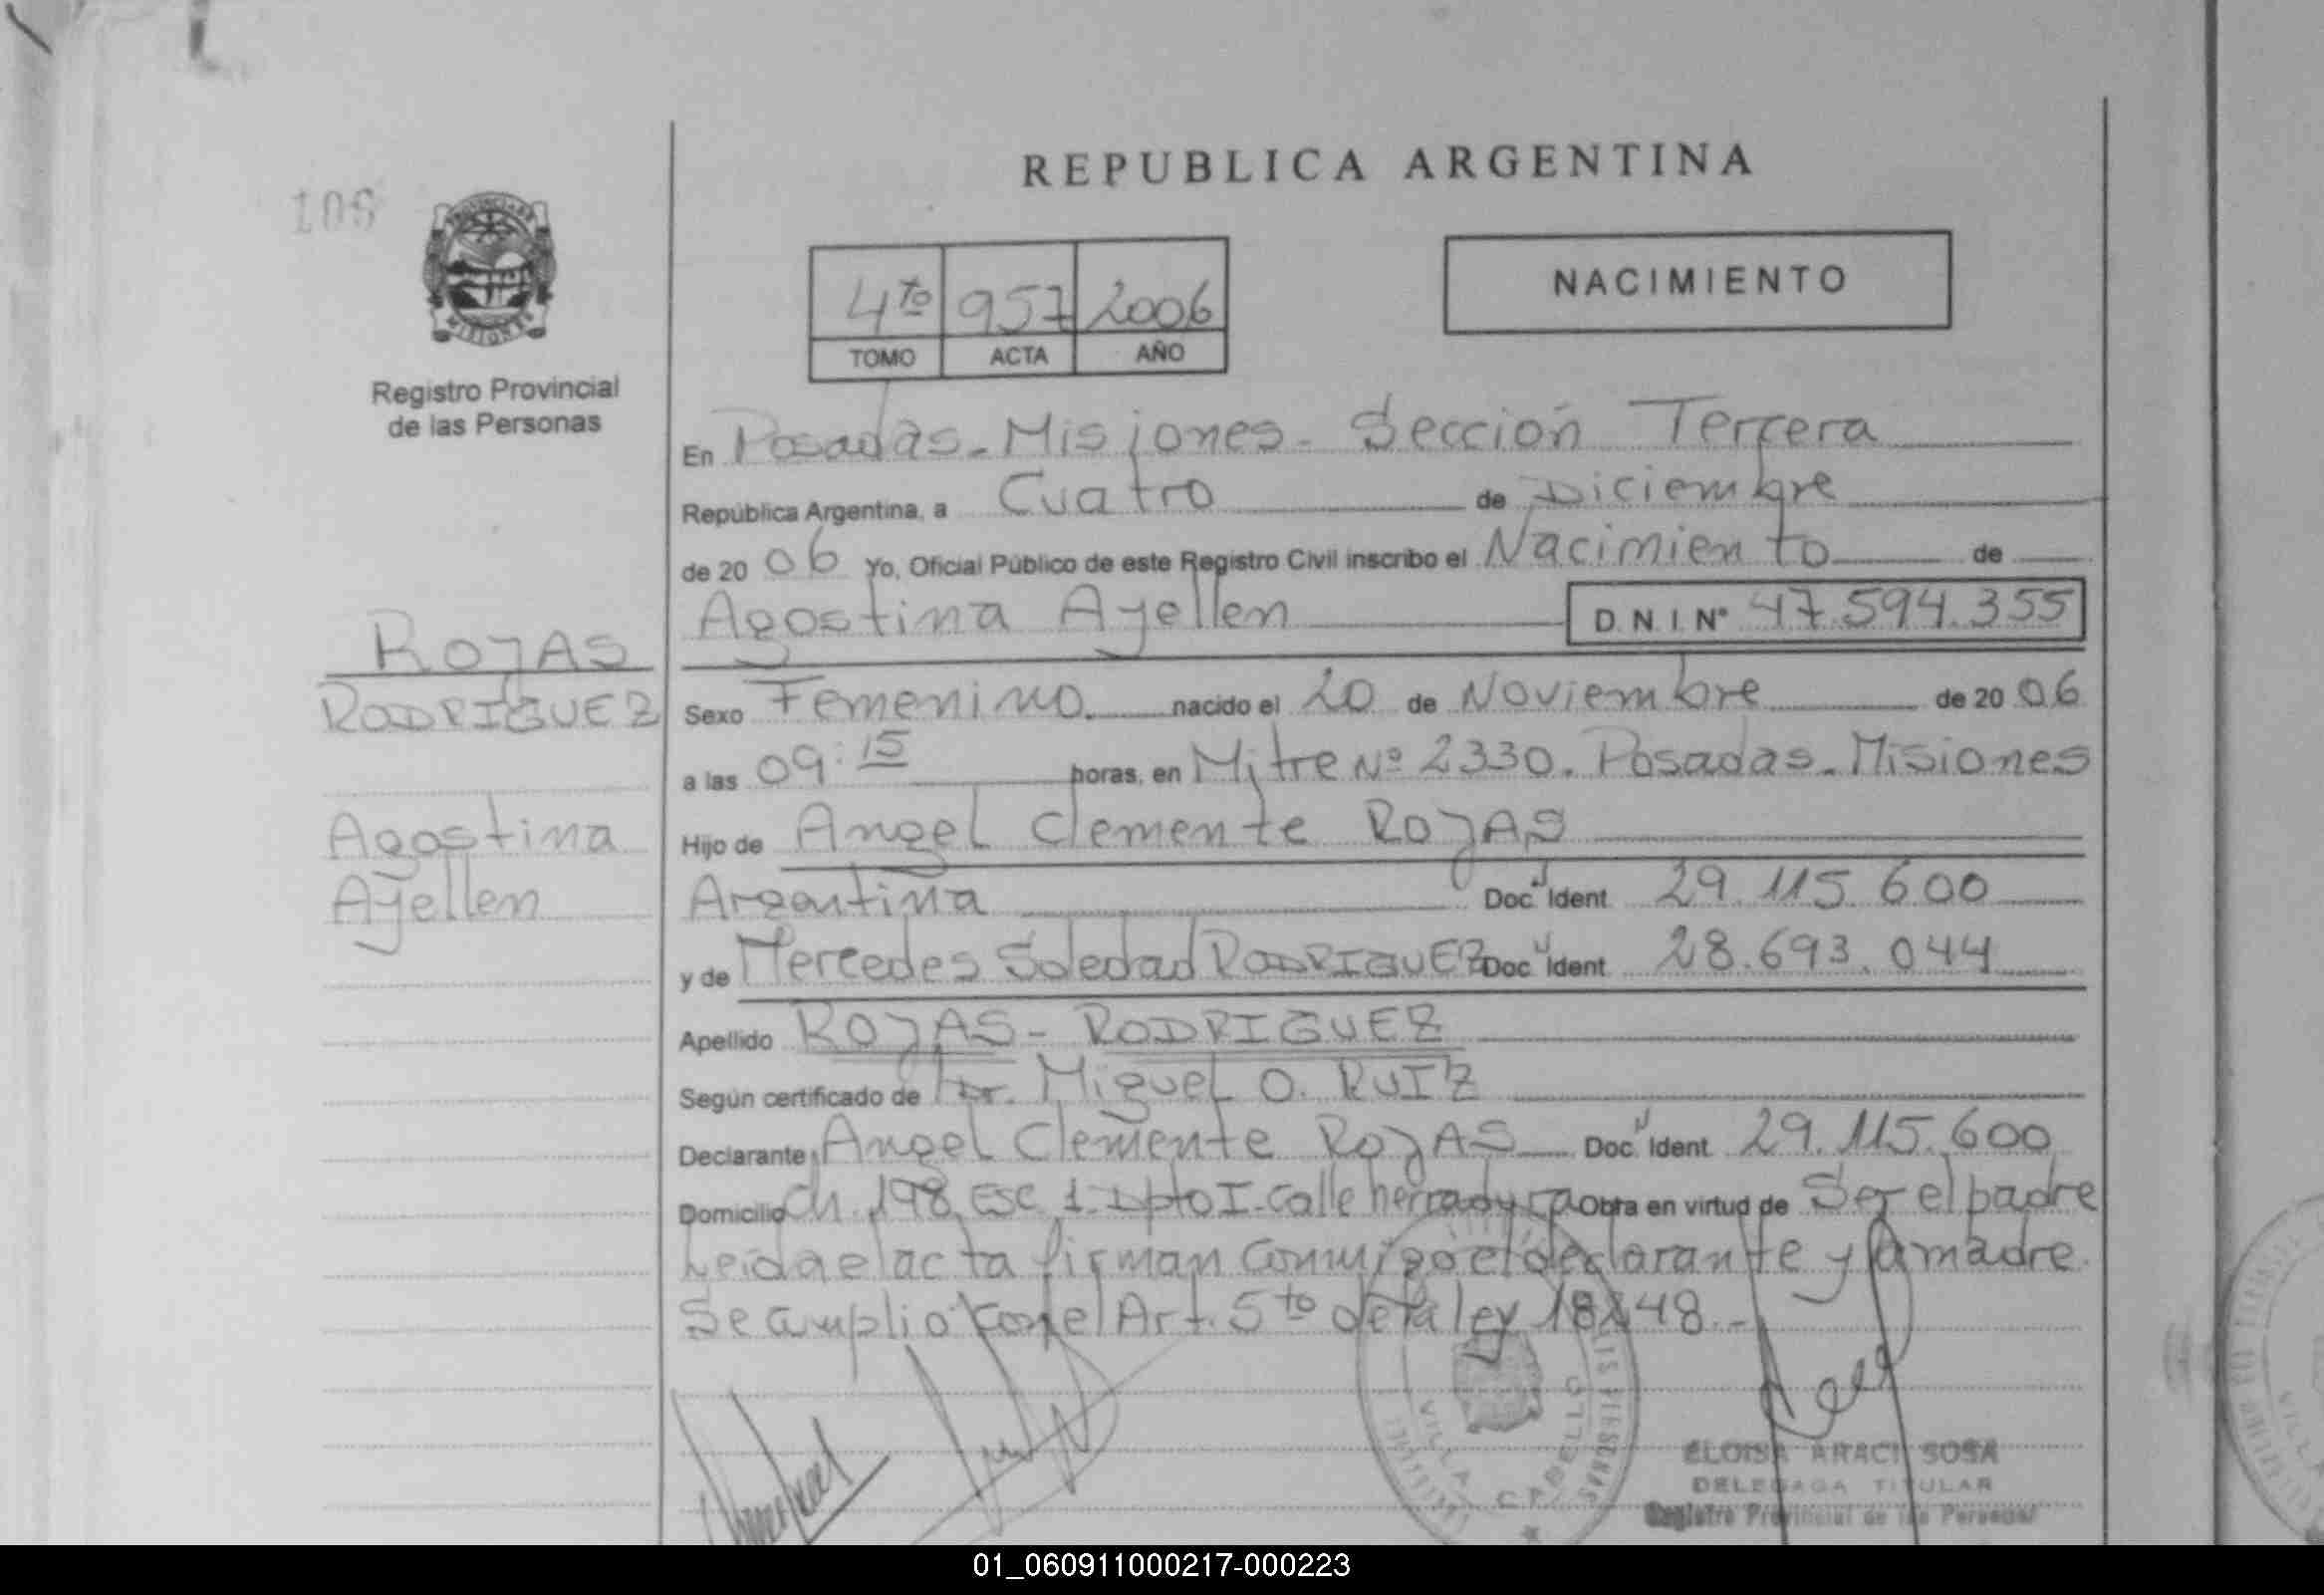 REPUBLICA ARGENTINA
106
MISIONES
4to 957 2006
TOMO ACTA AÑO
NACIMIENTO
Registro Provincial
de las Personas
En Posadas-Misiones- Sección Tercera
República Argentina, a Cuatro de Diciembre
de 2006 Yo, Oficial Público de este Registro Civil inscribo el Nacimiento de
Agostina Ayellen D.N.I. Nº 47.594.355
ROJAS
RODRIGUEZ
Sexo Femenino. nacido el 20 de Noviembre de 2006
a las 09:15 horas, en Mitre Nº 2330. Posadas-Misiones
Agostina
Ayellen
Hijo de Angel Clemente ROJAS
Argentina Doc. Ident. 29.115.600
y de Mercedes Soledad RODRIGUEZ Doc. Ident. 28.693.044
Apellido ROJAS - RODRIGUEZ
Según certificado de Dr. Miguel O. RUIZ
Declarante Angel Clemente ROJAS Doc. Ident. 29.115.600
Domicilio Ch. 198 Esc 1 Dpto I-Calle herradura Obra en virtud de Ser el padre
Leida el acta firman conmigo el declarante y la madre.
Se cumplió con el Art. 5to de la ley 18248.-
VILLA CABELLO
ELOISA ARACI SOSA
DELEGADA TITULAR
Registro Provincial de las Personas
01_060911000217-000223